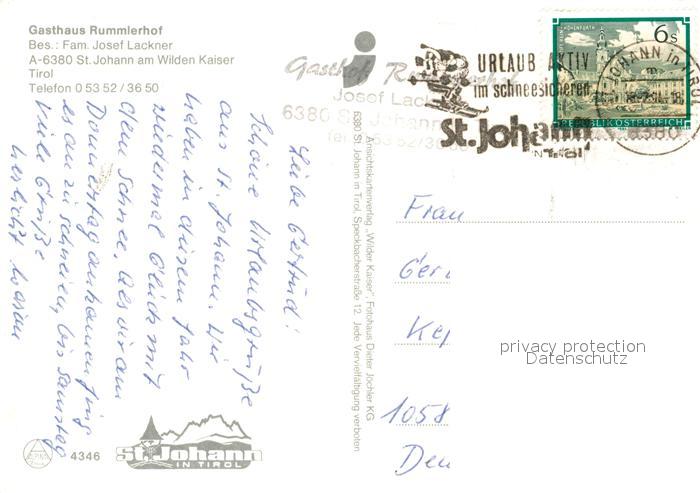 Gasthaus Rummlerhof
Bes.: Fam. Josef Lackner
A-6380 St. Johann am Wilden Kaiser
Tirol
Telefon 0 53 52 / 36 50
Gasthof Rummlerhof
Josef Lackner
6380 St. Johann
Tel. 0 53 52/36
URLAUB AKTIV
im schneesicheren
St. Johann
IN TIROL
6s
REPUBLIK ÖSTERREICH
ST. JOHANN in TIROL
6380
Liebe Gertrud!
Schöne Urlaubsgrüße
aus St. Johann. Wir
haben in diesem Jahr
wiedermal Glück mit
dem Schnee. Als wir am
Donnerstag ankamen fing
es an zu schneien, bis Samstag
Viele Grüße
herzlichst
Ansichtskartenverlag „Wilder Kaiser", Fotohaus Dieter Jöchler KG
6380 St. Johann in Tirol, Speckbacherstraße 12. Jede Vervielfältigung verboten
Frau
Ger
Kep
1058
Den
privacy protection
Datenschutz
4346
St. Johann
IN TIROL